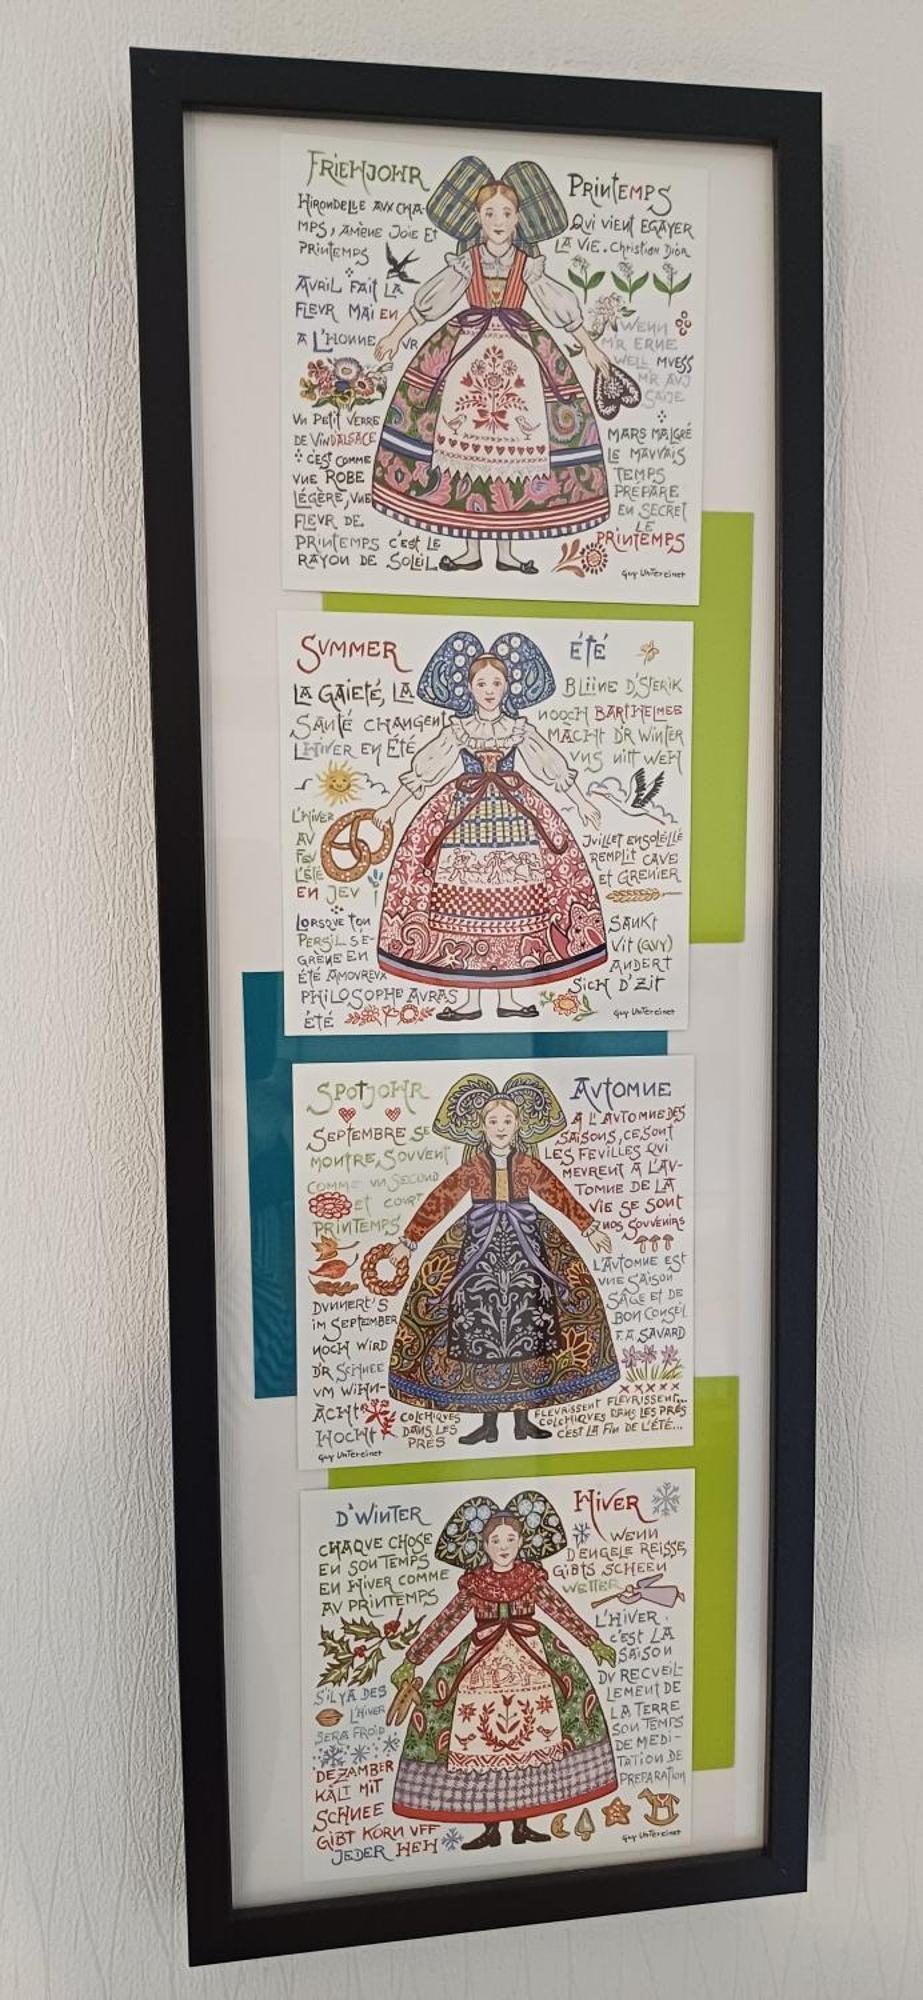 FRIEHJOHR
HIRONDELLE AUX CHA-
MPS, AMÈNE JOIE ET
PRINTEMPS
AVRIL FAIT LA
FLEUR MAI EN
A L'HONNEUR
UN PETIT VERRE
DE VIN D'ALSACE
C'EST COMME
UNE ROBE
LÉGÈRE, UNE
FLEUR DE
PRINTEMPS C'EST LE
RAYON DE SOLEIL
PRINTEMPS
QUI VIENT EGAYER
LA VIE. Christian Dior
WENN
M'R ERNE
WELL MUESS
M'R AUJ
SAÏJE
MARS MALGRÉ
LE MAUVAIS
TEMPS
PRÉPARE
EN SECRET
LE
PRINTEMPS
Guy Untereiner
SUMMER
LA GAIETÉ, LA
SANTÉ CHANGENT
L'HIVER EN ÉTÉ
L'HIVER
AU
FEU
L'ÉTÉ
EN JEU
LORSQUE TON
PERSIL SE-
GRÈNE EN
ÉTÉ AMOUREUX
PHILOSOPHE AURAS
ÉTÉ
ÉTÉ
BLIINE D'STERIK
NOOCH BARTHELMEE
MACHT D'R WINTER
UNS NITT WEH
JUILLET ENSOLEILLÉ
REMPLIT CAVE
ET GRENIER
SANKT
VIT (GUY)
ANDERT
SICH D'ZIT
Guy Untereiner
SPOTJOHR
SEPTEMBRE SE
MONTRE, SOUVENT
COMME UN SECOND
ET COURT
PRINTEMPS
DUNNERT'S
IM SEPTEMBER
NOCH WIRD
D'R SCHNEE
UM WIHN-
ÀCHT
HOCH
Guy Untereiner
COLCHIQUES
DANS LES
PRÉS
AUTOMNE
A L'AUTOMNE DES
SAISONS, CE SONT
LES FEUILLES QUI
MEURENT A L'AU-
TOMNE DE LA
VIE SE SONT
NOS SOUVENIRS
L'AUTOMNE EST
UNE SAISON
SAGE ET DE
BON CONSEIL
F.A SAVARD
FLEURISSENT FLEURISSENT...
COLCHIQUES DANS LES PRÉS
C'EST LA FIN DE L'ÉTÉ...
D'WINTER
CHAQUE CHOSE
EN SON TEMPS
EN HIVER COMME
AU PRINTEMPS
S'IL Y A DES
L'HIVER
SERA FROID
DEZAMBER
KÀLT MIT
SCHNEE
GIBT KORN UFF
JEDER HEH
HIVER
WENN
D'ENGELE REISSE,
GIBTS SCHEEN
WETTER
L'HIVER
C'EST LA
SAISON
DU RECUEIL-
LEMENT DE
LA TERRE
SON TEMPS
DE MEDI-
TATION DE
PREPARATION
Guy Untereiner